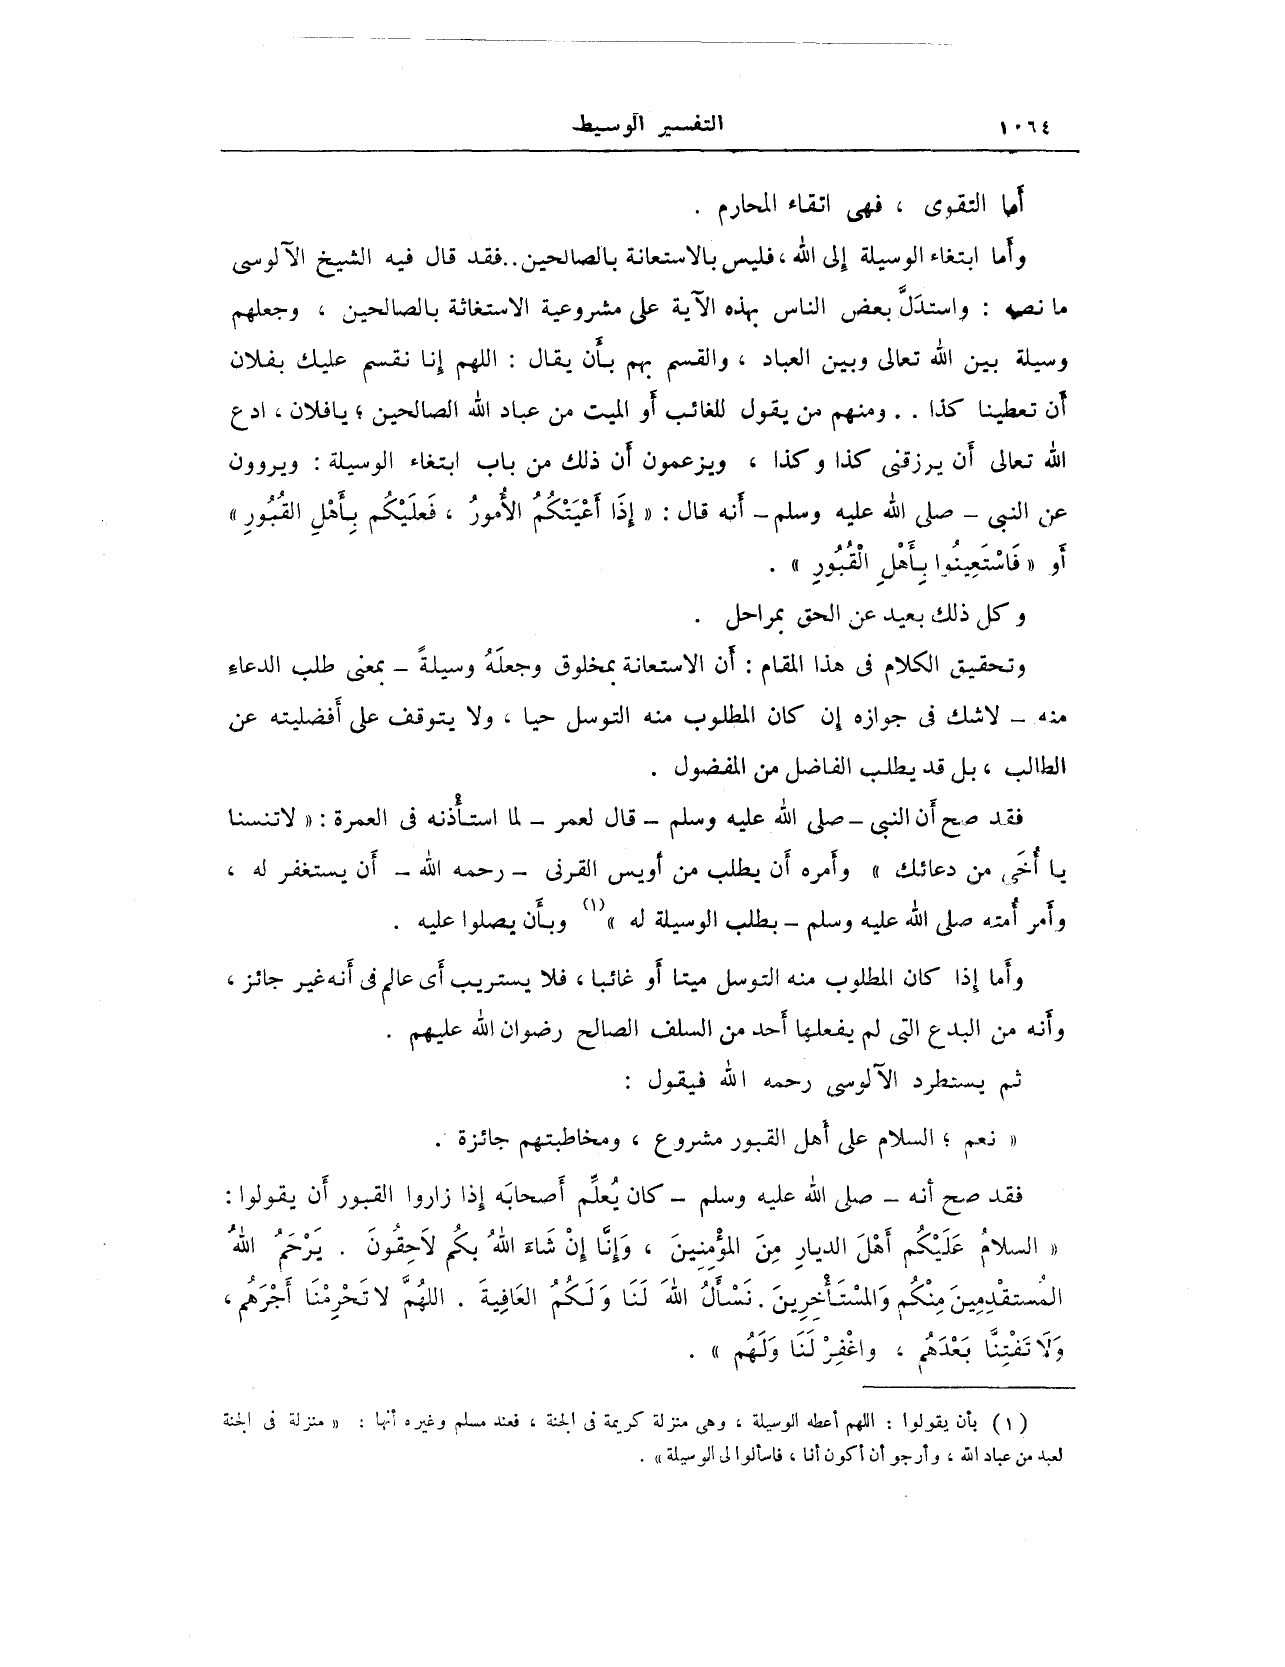 ١٠٦٤ التفسير الوسيط
أما التقوى ، فهى اتقاء المحارم .
وأما ابتغاء الوسيلة إلى الله ، فليس بالاستعانة بالصالحين..فقد قال فيه الشيخ الآلوسى
ما نصه : واستدَلَّ بعض الناس بهذه الآية على مشروعية الاستغاثة بالصالحين ، وجعلهم
وسيلة بين الله تعالى وبين العباد ، والقسم بهم بأن يقال : اللهم إنا نقسم عليك بفلان
أن تعطينا كذا .. ومنهم من يقول للغائب أو الميت من عباد الله الصالحين ؛ يافلان ، ادع
الله تعالى أن يرزقنى كذا وكذا ، ويزعمون أن ذلك من باب ابتغاء الوسيلة : ويروون
عن النبى – صلى الله عليه وسلم – أنه قال : « إِذَا أَعْيَتْكُمُ الأُمورُ ، فَعلَيْكُم بِأَهْلِ القُبُورِ »
أو « فَاسْتَعِينُوا بِأَهْلِ الْقُبُورِ » .
وكل ذلك بعيد عن الحق بمراحل .
وتحقيق الكلام فى هذا المقام : أن الاستعانة بمخلوق وجعلَهُ وسيلةً – بمعنى طلب الدعاء
منه – لاشك فى جوازه إن كان المطلوب منه التوسل حيا ، ولا يتوقف على أفضليته عن
الطالب ، بل قد يطلب الفاضل من المفضول .
فقد صح أن النبى – صلى الله عليه وسلم – قال لعمر – لما استأذنه فى العمرة : « لاتنسنا
يا أُخَى من دعائك » وأمره أن يطلب من أويس القرنى – رحمه الله – أن يستغفر له ،
وأمر أُمته صلى الله عليه وسلم – بطلب الوسيلة له »(١) وبأن يصلوا عليه .
وأما إذا كان المطلوب منه التوسل ميتا أو غائبا ، فلا يستريب أى عالم فى أنه غير جائز ،
وأنه من البدع التى لم يفعلها أحد من السلف الصالح رضوان الله عليهم .
ثم يستطرد الآلوسى رحمه الله فيقول :
« نعم ؛ السلام على أهل القبور مشروع ، ومخاطبتهم جائزة .
فقد صح أنه – صلى الله عليه وسلم – كان يُعلِّم أصحابَه إذا زاروا القبور أن يقولوا :
« السلامُ عَلَيْكُم أَهْلَ الديارِ مِنَ المؤْمِنِينَ ، وَإِنَّا إِنْ شَاءَ اللهُ بكُم لَاحِقُونَ . يَرْحَمُ اللهُ
المُستقْدِمِينَ مِنْكُم وَالمْسْتَأْخِرِينَ . نَسْأَلُ اللهَ لَنَا وَلَكُمُ العَافِيةَ . اللهُمَّ لا تَحْرِمْنَا أَجْرَهُم ،
وَلَا تَفْتِنَّا بَعْدَهُم ، واغْفِرْ لَنَا وَلَهُم » .
(١) بأن يقولوا : اللهم أعطه الوسيلة ، وهى منزلة كريمة فى الجنة ، فعند مسلم وغيره أنها : « منزلة فى الجنة
لعبد من عباد الله ، وأرجو أن أكون أنا ، فاسألوا لى الوسيلة » .